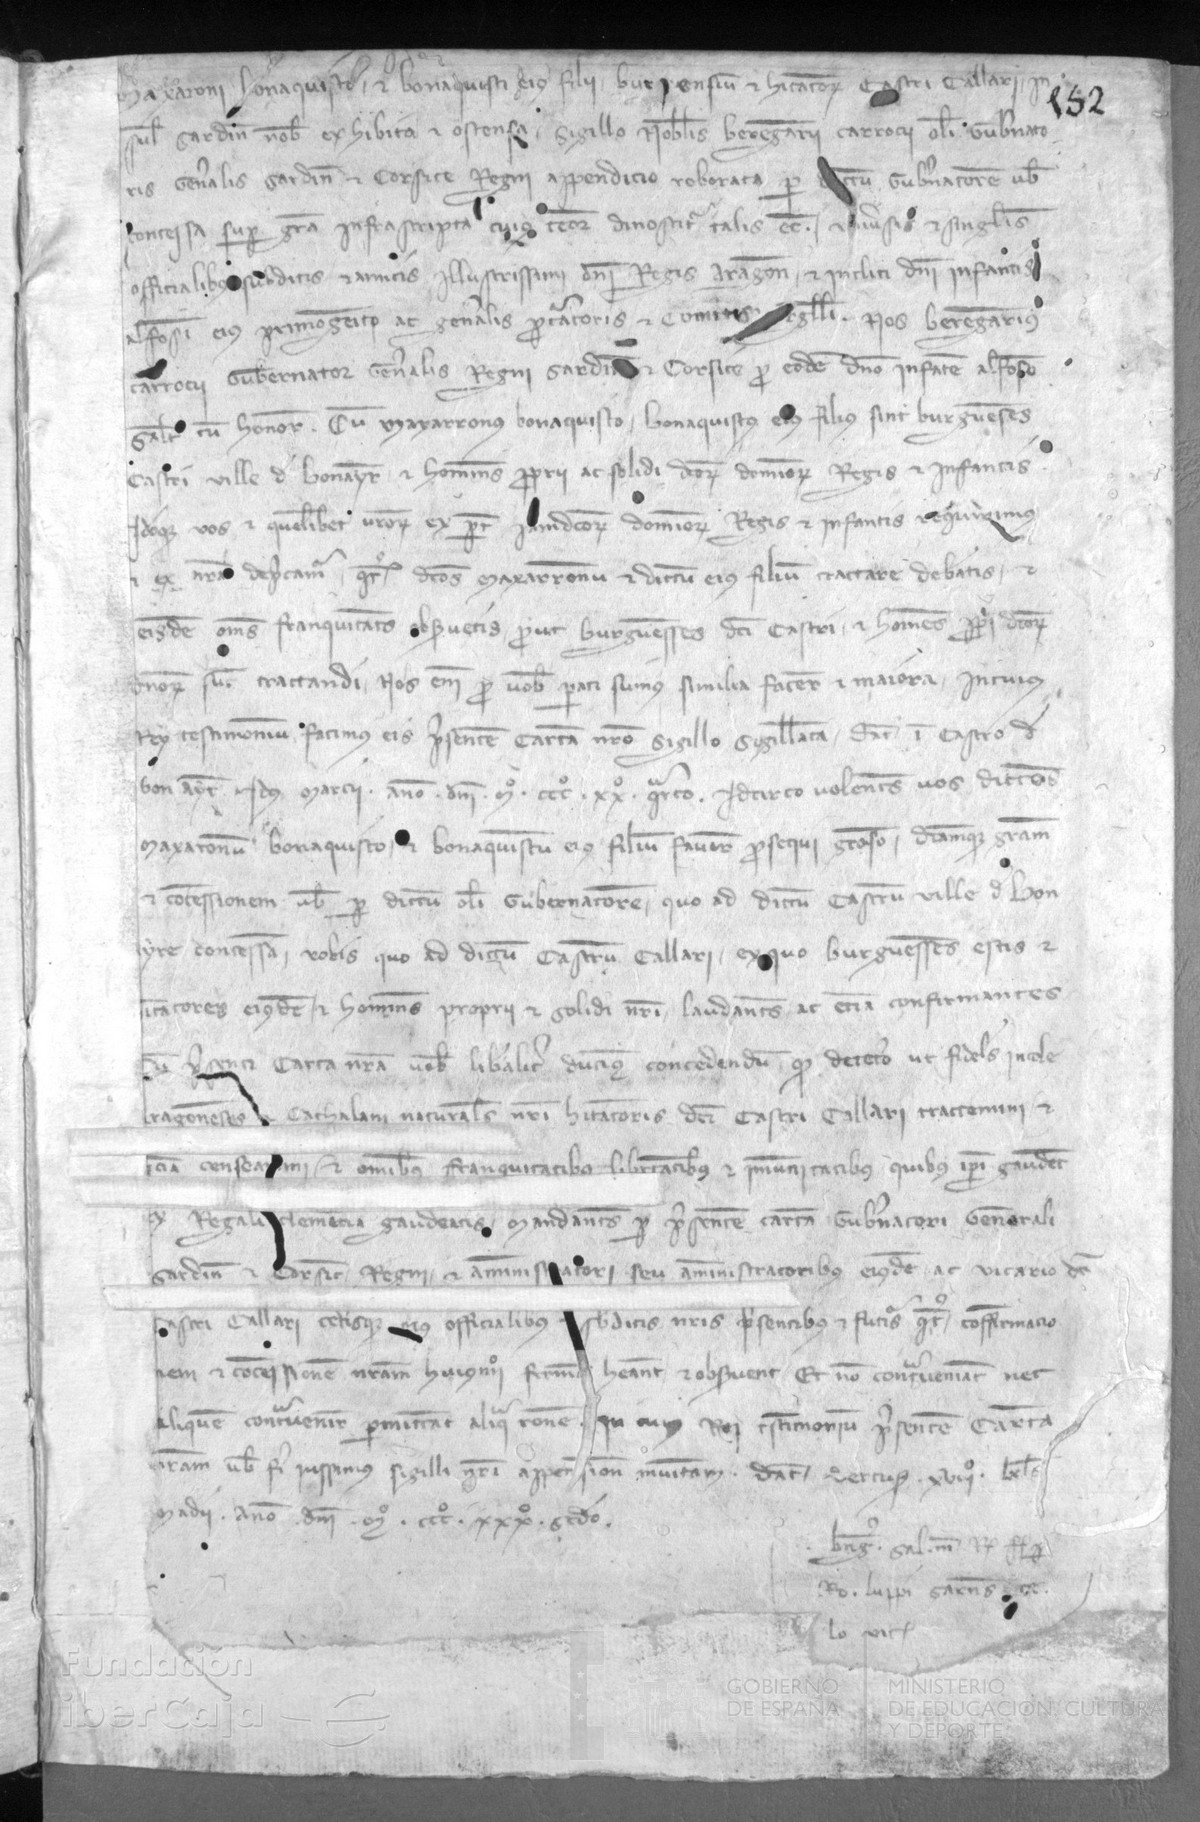 Maxaroni bonaquisto et bonaquisti eius filii burgensium et hitatorum Castri Callari in
sul sardinie nob exhibita et ostensa sigillo Nobilis berengarii carrocii oli Gubnato
ris Genalis Sardin et Corsice Regni appendicio roborata p dictu Gubnatore ub
concessa sup gra infrascripta cuius tenor dinoscit talis est. Univsis et singlis
officialibus subditis et amicis Illustrissimi dni Regis Aragon et incliti dni infantis
alfosi eius primogeito ac genalis pcatoris et Comitis Urgelli. Nos berengarius
carrocii Gubernator Genalis Regni Sardin et Corsice p eode dno infate alfoso
Salt cu honor. Cu Maxarronus bonaquisto, bonaquistus eius filius sint burguenses
Castri ville d bonayr et homines proprii ac solidi dcor dominor Regis et Infantis
Idcirq vos et quelibet vror ex pt iamdictor dominor Regis et infantis requirimus
et ex nra depcamur qt dcos Maxarronu et dictu eius filiu tractare debatis, et
eisde oms franquitats obsvetis put burguesses dci Castri et homes prii dcor
dnor sut tractandi. Nos eni p uob pati sumus similia facer et maiora. In cuius
Rey testimoniu facimus eis psente Carta nro Sigillo Sigillata. Dat i Castro d
bon ayr Idus marcii. Ano dni Mº. CCCº. XXº. qrto. Idcirco volents vos dictos
Maxaronu bonaquisto, et bonaquistu eius filiu favor psequi gtoso, dictamq gram
et cocessionem ub p dictu oli Gubernatore, quo ad dictu Castru ville d bon
ayre concessa, vobis quo ad dictu Castru Callari, ex quo burguesses estis et
itatores eiusde, et homines proprii et solidi nri, laudants ac ecia confirmantes
Cu psenti Carta nra uob libalit duciq concedendu, q deceto ut fidels incole
Aragoneses et Cathalani naturals nri hitatoris dci Castri Callari tractemini et
ecia censeamini, et omibus franquitatibus libertatibus et imunitatibus quibus ipi gaudet
ex Regali clemecia gaudeatis. Mandants p psente carta Gubnatori Generali
Sardin et Corsice Regni, et amministratori seu amministratoribus eiusde, ac vicario dci
Castri Callari cetisq eius officialibus et sbditis nris psentibus et futis qt coffirmacio
nem et cocessione nram huiusmoi firma heant et obsvent, Et no contveniat nec
alique contvenir pmittat aliq rone. In cuius Rei testimoniu psente Carta
nram ub fi iussimus sigilli nri appension munitam. Dat dertus. XVIIº. kls
Madii. Ano dni Mº. CCCº. XXXº. scdo.
bng. sal.
Ro. luppi Sarns
lo vic
152
Fundación
iberCaja
GOBIERNO
DE ESPAÑA
MINISTERIO
DE EDUCACIÓN, CULTURA
Y DEPORTE